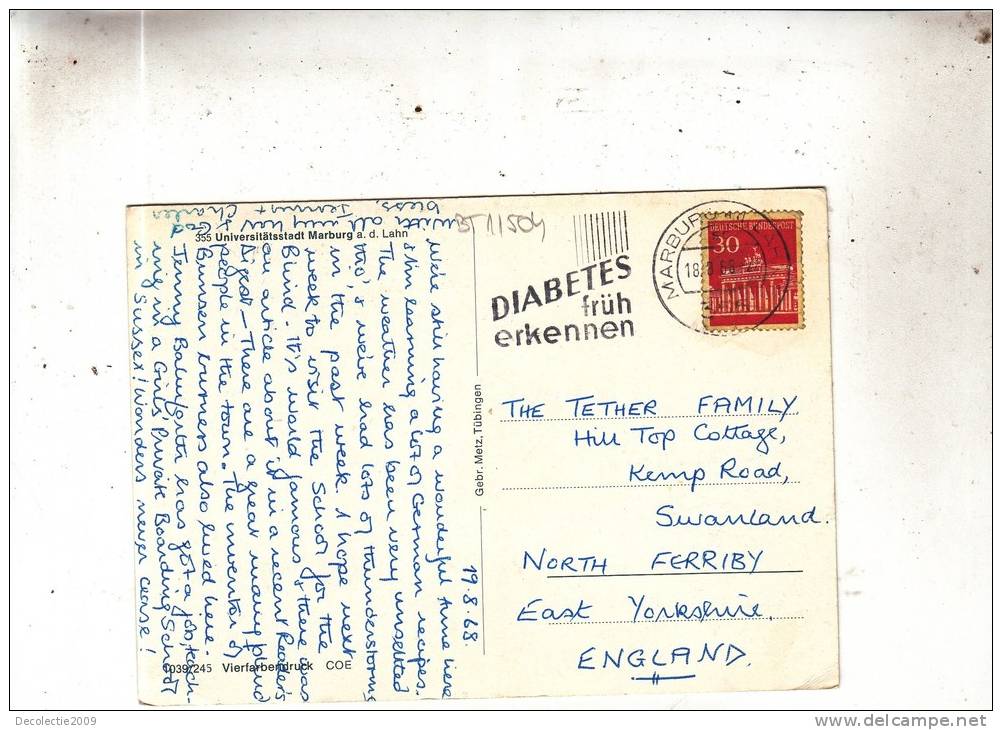 355 Universitätsstadt Marburg a. d. Lahn
19.8.68.
We're still having a wonderful time here
& I'm learning a lot of German recipes.
The weather has been very unsettled
tho', & we've had lots of thunderstorms
in the past week. I hope next
week to visit the School for the
Blind. It's world famous & there was
an article about it in a recent Reader's
Digest – There are a great many blind
people in the town. The inventor of
Bunsen burners also lived here.
Jenny has got a job, teach-
ing in a Girls' Private Boarding School
in Sussex! Wonders never cease!
with all my love &
God bless,
Jenny + Charles
1039/245 Vierfarbendruck COE
Gebr. Metz, Tübingen
BT 11504
DIABETES
früh
erkennen
MARBURG
18.8.68
DEUTSCHE BUNDESPOST
30
THE TETHER FAMILY
Hill Top Cottage,
Kemp Road,
Swanland.
NORTH FERRIBY
East Yorkshire,
ENGLAND.
Decolectie2009
delcampe.net